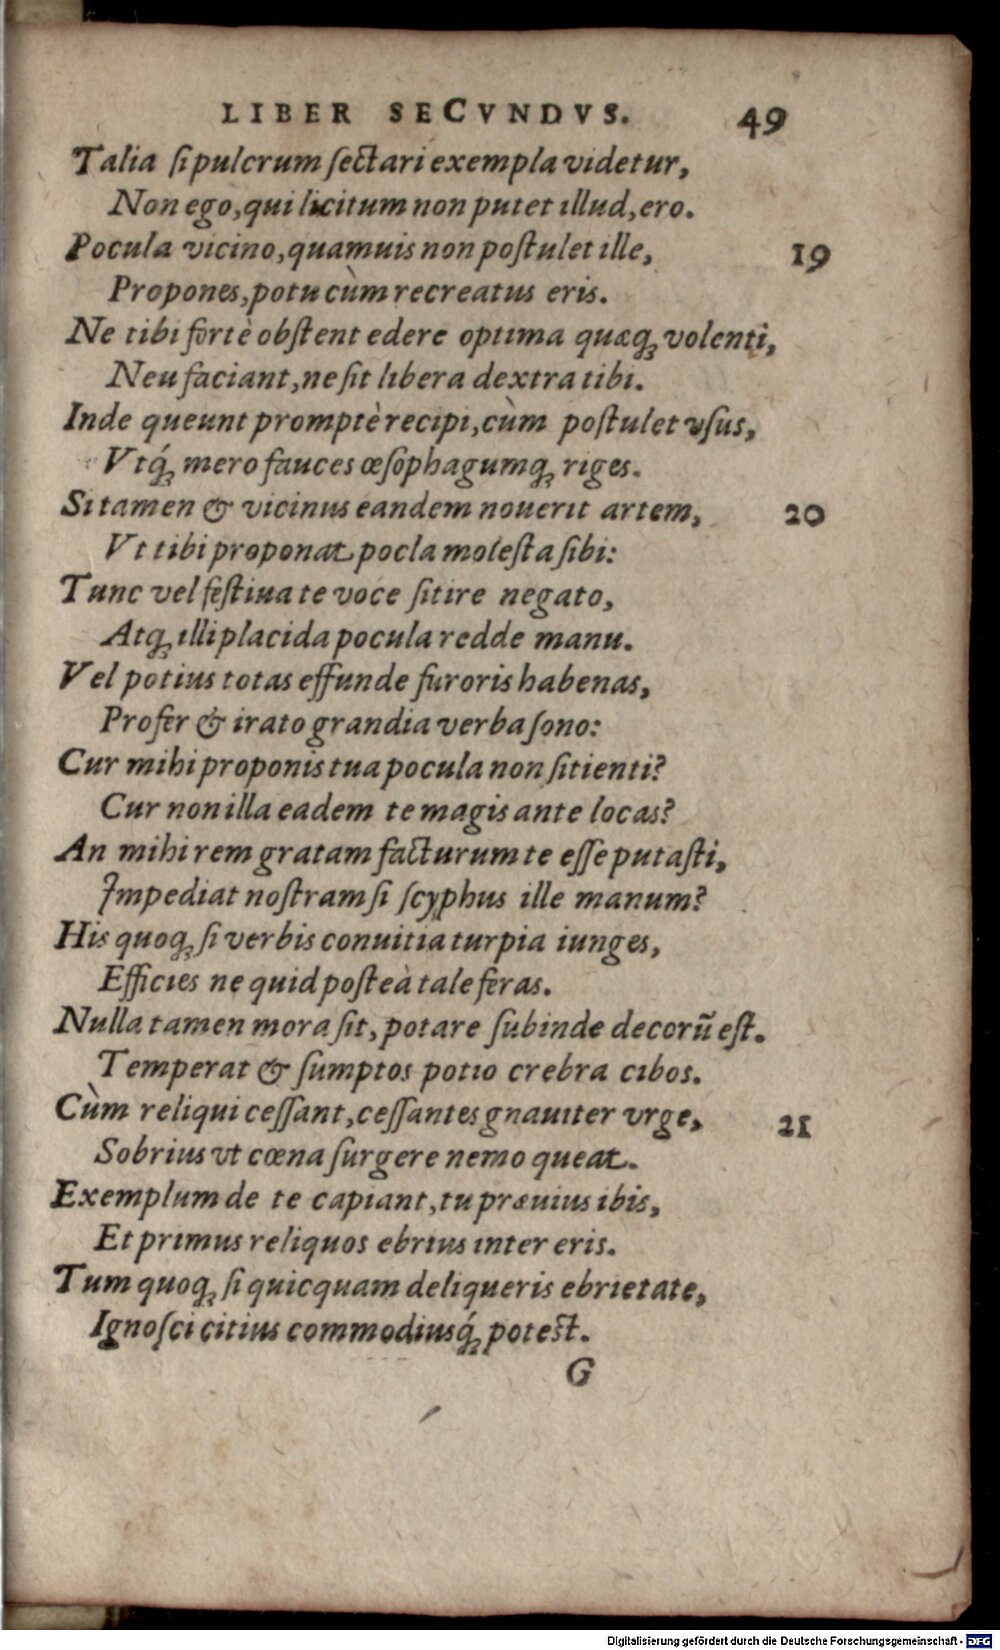 LIBER SECVNDVS. 49
Talia ſi pulcrum ſectari exempla videtur,
Non ego, qui licitum non putet illud, ero.
Pocula vicino, quamuis non poſtulet ille, 19
Propones, potu cùm recreatus eris.
Ne tibi fortè obſtent edere optima quæq; volenti,
Neu faciant, ne ſit libera dextra tibi.
Inde queunt promptè recipi, cùm poſtulet vſus,
Vtq́; mero fauces œſophagumq; riges.
Si tamen & vicinus eandem nouerit artem, 20
Vt tibi proponat pocla moleſta ſibi:
Tunc vel feſtiua te voce ſitire negato,
Atq; illi placida pocula redde manu.
Vel potius totas effunde furoris habenas,
Profer & irato grandia verba ſono:
Cur mihi proponis tua pocula non ſitienti?
Cur non illa eadem te magis ante locas?
An mihi rem gratam facturum te eſſe putaſti,
Impediat noſtram ſi ſcyphus ille manum?
His quoq; ſi verbis conuitia turpia iunges,
Efficies ne quid poſteà tale feras.
Nulla tamen mora ſit, potare ſubinde decorū eſt.
Temperat & ſumptos potio crebra cibos.
Cùm reliqui ceſſant, ceſſantes gnauiter vrge, 21
Sobrius vt cœna ſurgere nemo queat.
Exemplum de te capiant, tu præuius ibis,
Et primus reliquos ebrius inter eris.
Tum quoq; ſi quicquam deliqueris ebrietate,
Ignoſci citius commodiusq́; poteſt.
G
Digitalisierung gefördert durch die Deutsche Forschungsgemeinschaft - DFG